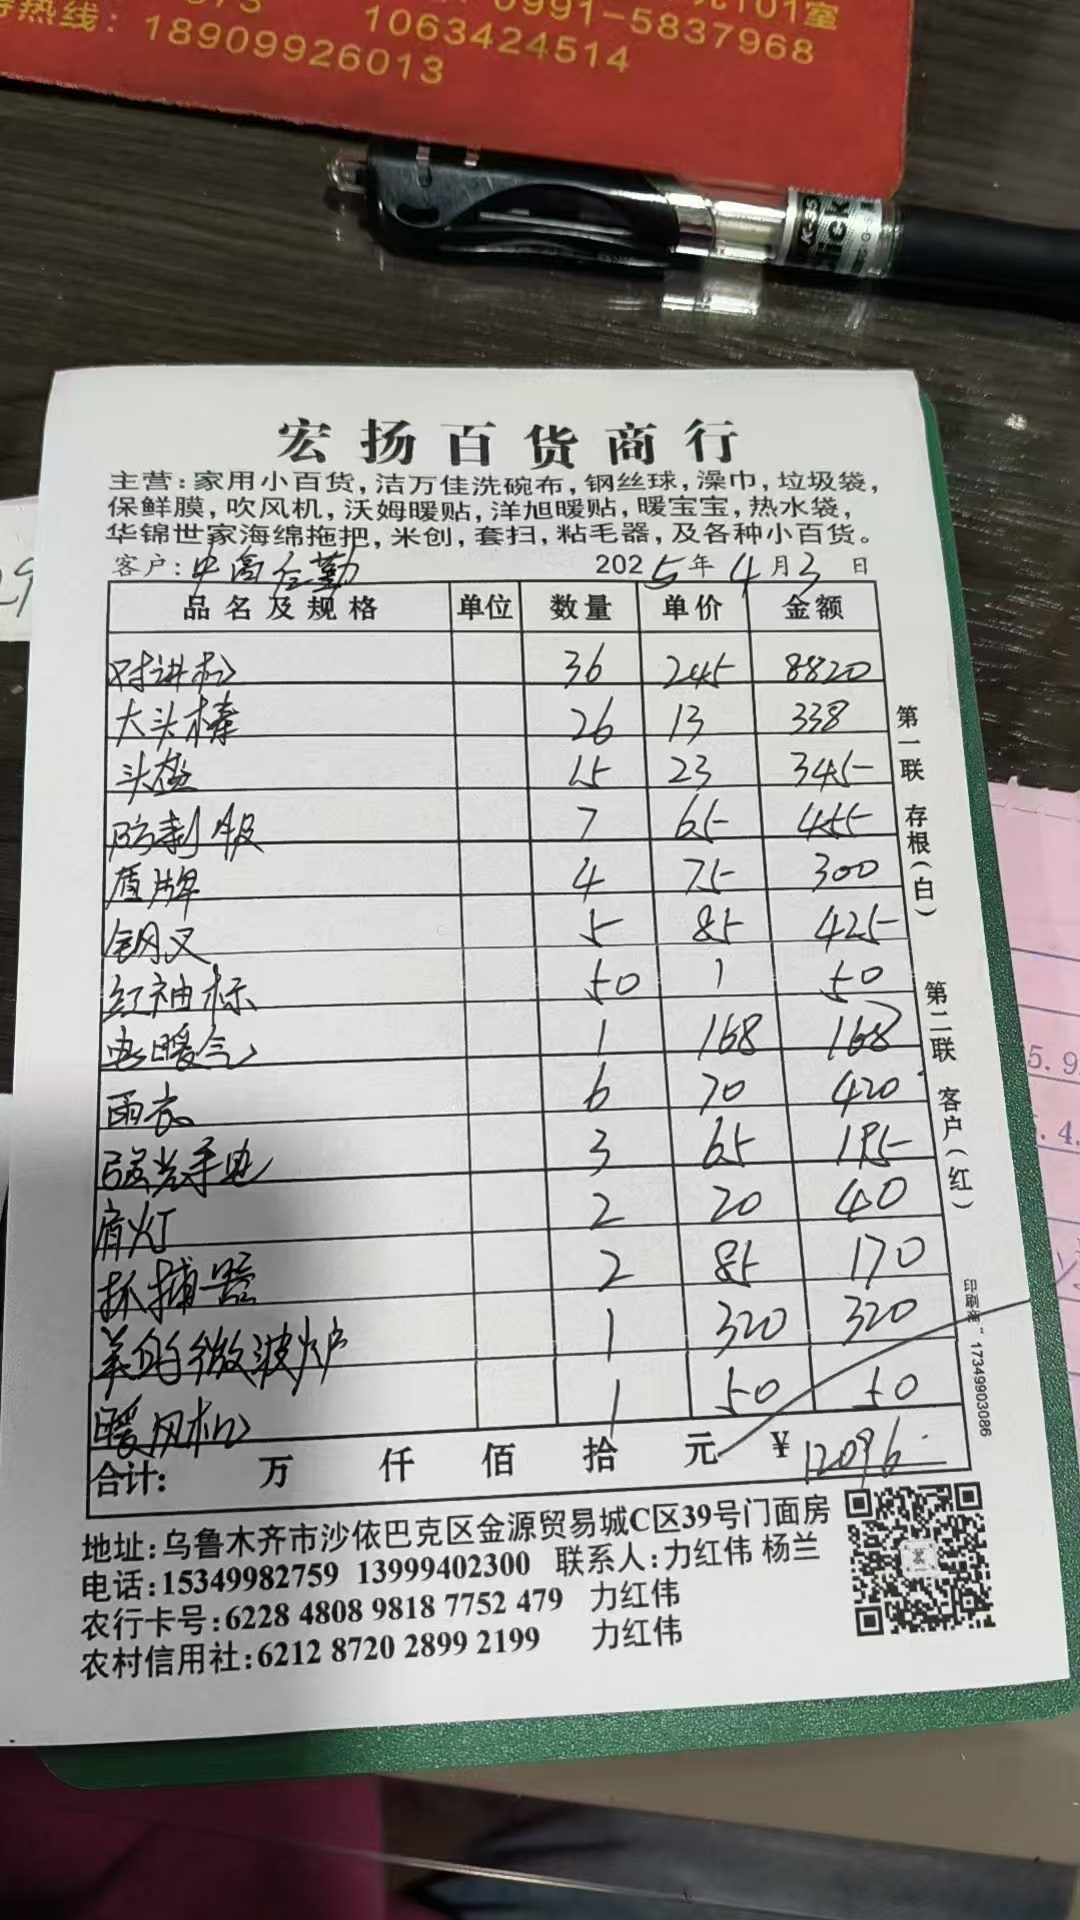 0991-5837968
1063424514
热线：18909926013
宏扬百货商行
主营：家用小百货，洁万佳洗碗布，钢丝球，澡巾，垃圾袋，
保鲜膜，吹风机，沃姆暖贴，洋旭暖贴，暖宝宝，热水袋，
华锦世家海绵拖把，米创，套扫，粘毛器，及各种小百货。
客户： 2025年4月3日
品名及规格 单位 数量 单价 金额
对讲机 36 245 8820
大头棒 26 13 338
头盔 15 23 345
防刺服 7 65 455
盾牌 4 75 300
钢叉 5 85 425
红袖标 50 1 50
电暖气 1 168 168
雨衣 6 70 420
强光手电 3 65 195
肩灯 2 20 40
抓捕器 2 85 170
美的微波炉 1 320 320
暖风机 1 50 50
合计： 万 仟 佰 拾 元 ¥12096
第一联 存根（白） 第二联 客户（红）
17349903086
地址：乌鲁木齐市沙依巴克区金源贸易城C区39号门面房
电话：15349982759 13999402300 联系人：力红伟 杨兰
农行卡号：6228 4808 9818 7752 479 力红伟
农村信用社：6212 8720 2899 2199 力红伟